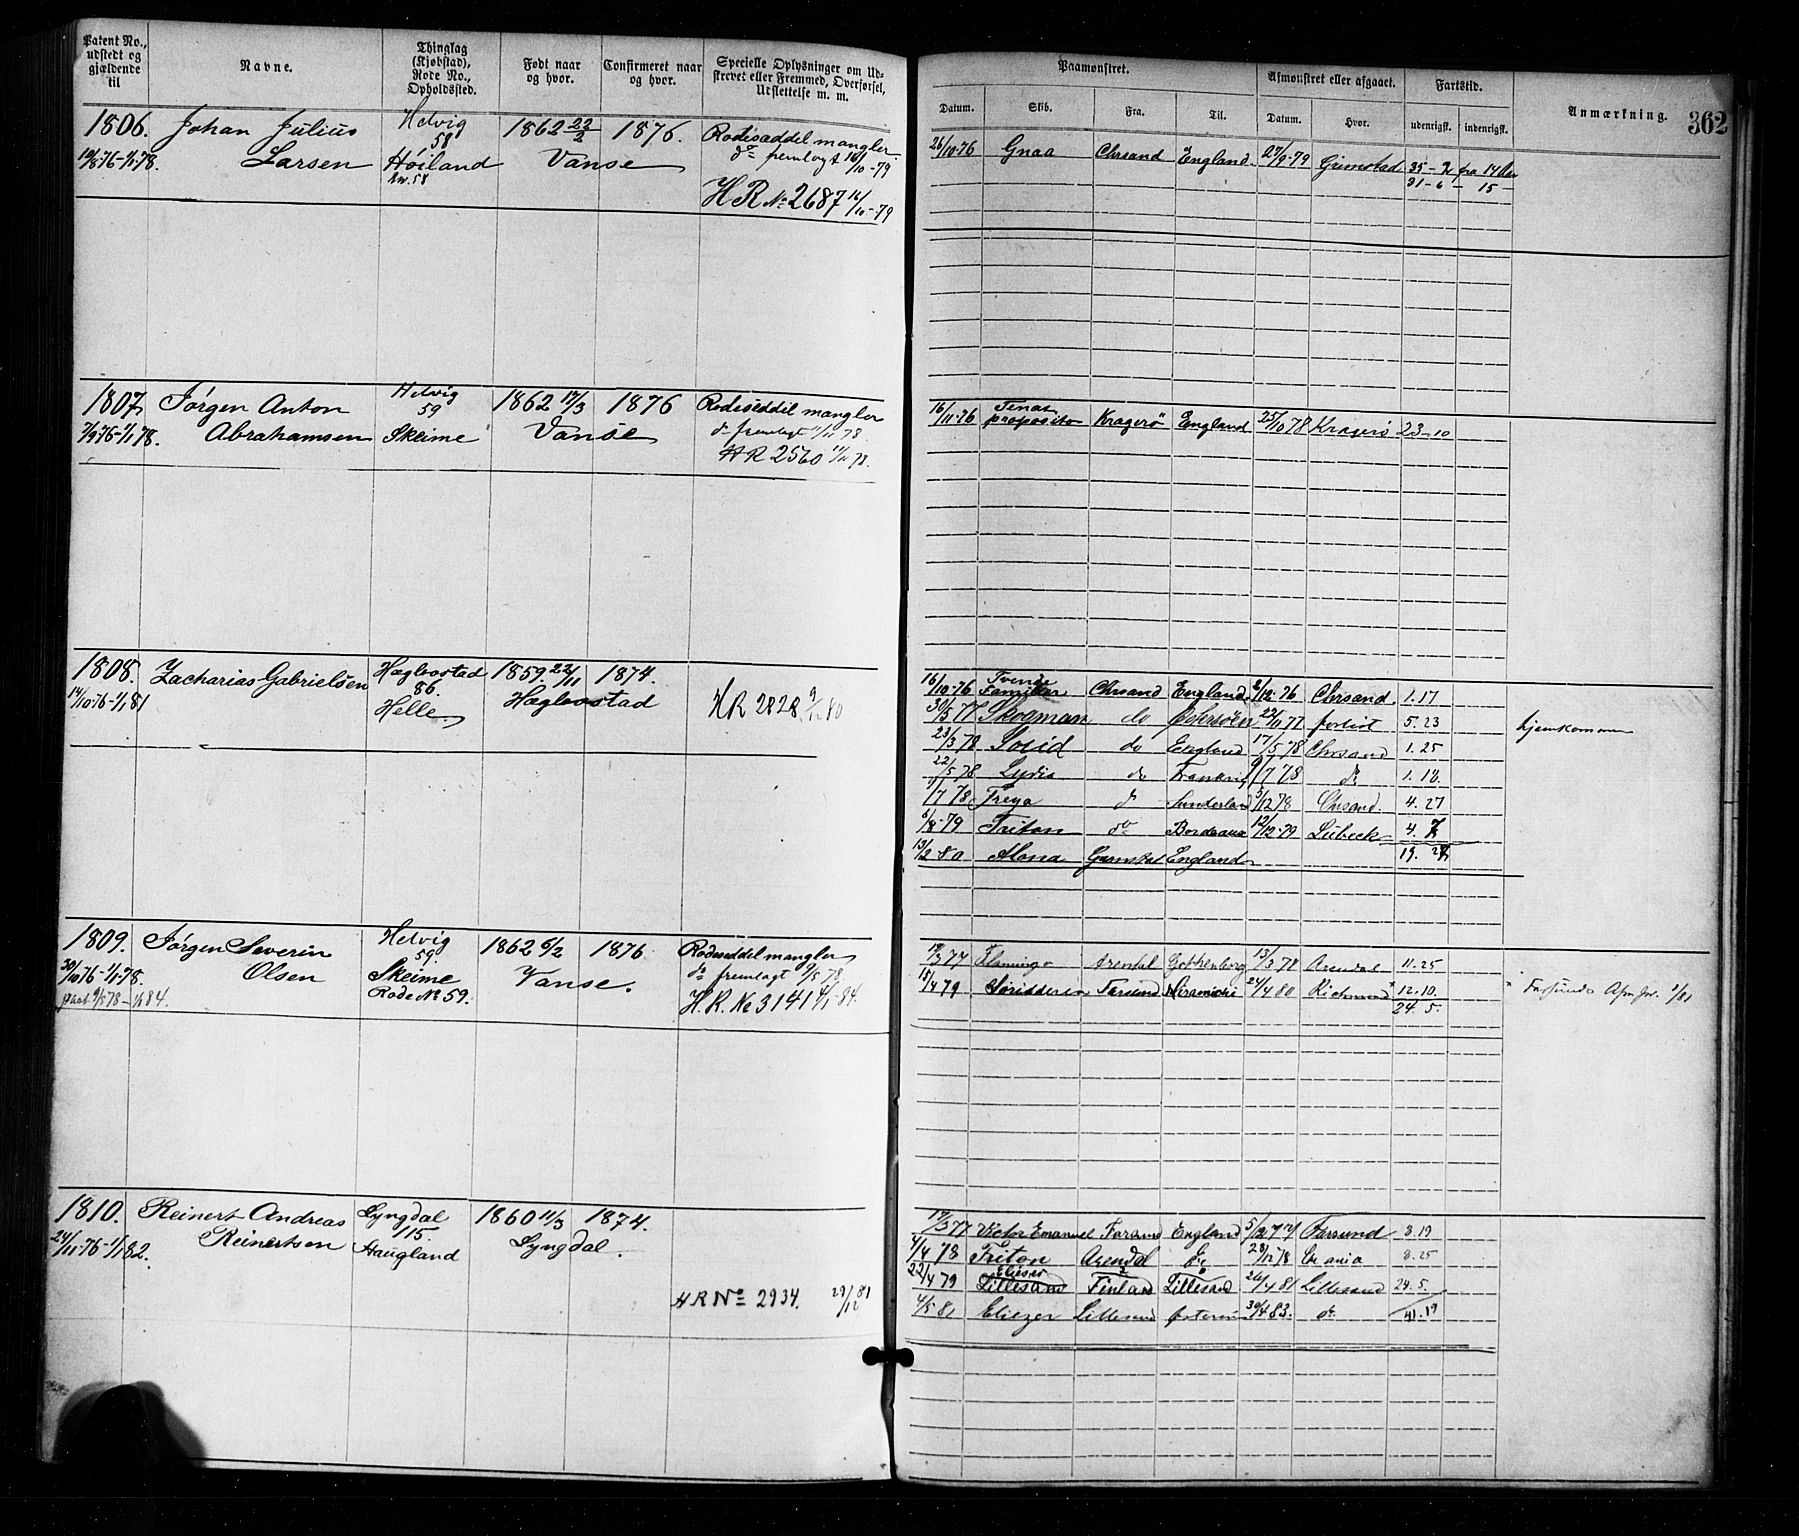 Patent No., udstedt og gjældende til
Navne.
Thinglag (Kjøbstad), Rode No., Opholdssted.
Født naar og hvor.
Confirmeret naar og hvor.
Specielle Oplysninger om Udskrevet eller Fremmed, Overførsel, Udslettelse m. m.
1806. Johan Julius Helvig 1862 22/2 1876. Rodeseddel mangler.
58
Larsen Høiland Vanse do fremlagt 16/10-79
Rw. 58
HR No 2687 16/10-79
1807 Jørgen Anton Helvig 1862 17/3 1876 Rodeseddel mangler
59
7/9 76-1/1 78. Abrahamsen Skeime Vanse do fremlagt 11/11 78
HR 2560 11/11 78.
1808. Zacharias Gabrielsen Hægbostad 1859. 22/11 1874.
86.
14/10 76-1/1 81 Helle Hægbostad HR 2828 9/12 80
1809. Jørgen Severin Helvig 1862 6/2 1876. Rodeseddel mangler
59.
30/10 76-1/1-78. Olsen Skeime Vanse. do fremlagt 9/5 78.
Rode No 59. H. R. No 3141 4/1-84.
1810. Reinert Andreas Lyngdal 1860 11/3 1874.
115.
24/11-76-1/1 82. Reinertsen Haugland Lyngdal.
HR No 2934. 29/12 81
Paamønstret.
Afmønstret eller afgaaet.
Fartstid.
Anmærkning.
362
Datum. Skib. Fra. Til. Datum. Hvor. udenrigsk. indenrigsk.
26/10-76 Gnaa Chrsand England 27/9-79 Grimstad 35-2 fra 14 Aar
31-6- 15
16/11-76 Tenax propositо Kragerö England 25/10 78 Kragerö 23-10
16/10-76 Tvende Familier Chrsand England 2/12-76 Chrsand. 1.17
30/5 77 Skogman do Østersöen 22/11 77 forlist 5.23 hjemkommen
23/3 78 Solid do England 17/5 78 Chrsand 1.25
22/5 78 Lydia do Frankrig 9/7 78 do 1.18.
/7 78 Freya do Sunderland 5/12 78 Chrsand. 4.27
8/8-79 Triton do Bordeaux 12/12-79 Lübeck 4.7
13/2-80 Alona Grimstad England 19.
12/3 77 Flamingo Arendal Gothenborg 13/3 78 Arendal 11.25
15/4 79 Farsund 24/4 80 Richmond 12.10.
24.5.
17/3 77 Victor Emanuel Farsund England 5/12 77 Farsund 8.19
4/4 78 Triton Arendal 28/12 78 Crania 8.25
22/4 79 Elieser Lillesand Finland Lillesand 26/4 81 Lillesand 24.5.
4/5 81 Eliezer Lillesand 30/4 83. do 41.19